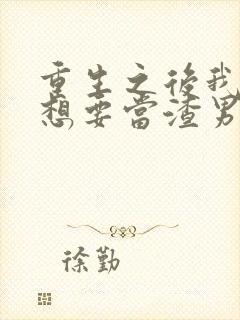 重生之後我
想要當渣男
徐勤